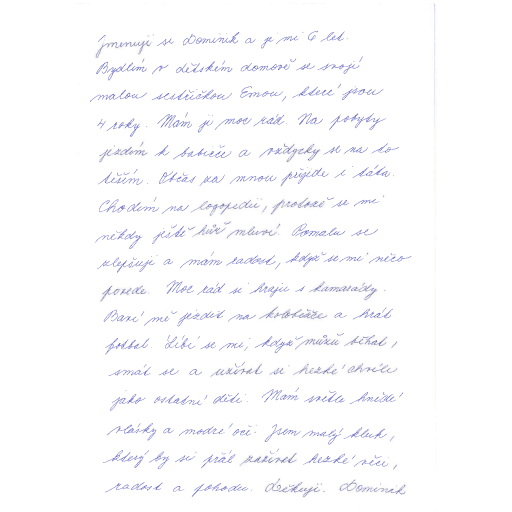 Jmenuji se Dominik a je mi 6 let.
Bydlím v dětském domově se svojí
malou sestřičkou Emou, které jsou
4 roky. Mám ji moc rád. Na pobyty
jezdím k babičce a vždycky se na to
těším. Občas za mnou přijede i táta.
Chodím na logopedii, protože se mi
někdy ještě hůř mluví. Pomalu se
zlepšuji a mám radost, když se mi něco
povede. Moc rád si hraju s kamarády.
Baví mě jezdit na koloběžce a hrát
fotbal. Líbí se mi, když můžu běhat,
smát se a užívat si hezké chvíle
jako ostatní děti. Mám světle hnědé
vlásky a modré oči. Jsem malý kluk,
který by si přál zažívat hezké věci,
radost a pohodu. Děkuji. Dominik